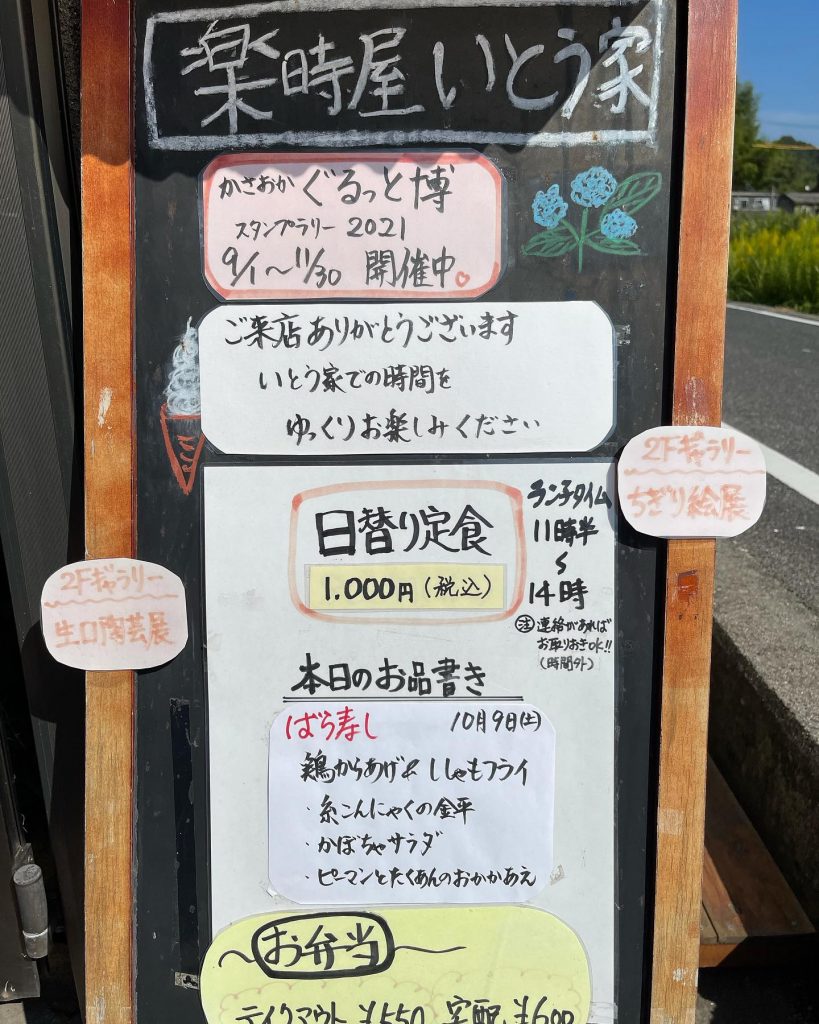 楽時屋いとう家
かさおか ぐるっと博
スタンプラリー 2021
9/1〜11/30 開催中
ご来店ありがとうございます
いとう家での時間を
ゆっくりお楽しみください
2Fギャラリー
ちぎり絵展
日替り定食
1.000円(税込)
ランチタイム
11時半
〜
14時
注 連絡があれば
お取りおきOK!!
(時間外)
2Fギャラリー
生口陶芸展
本日のお品書き
ばら寿し 10月9日(土)
鶏からあげ & ししゃもフライ
・糸こんにゃくの金平
・かぼちゃサラダ
・ピーマンとたくあんのおかかあえ
〜お弁当〜
テイクアウト ¥550 宅配 ¥600